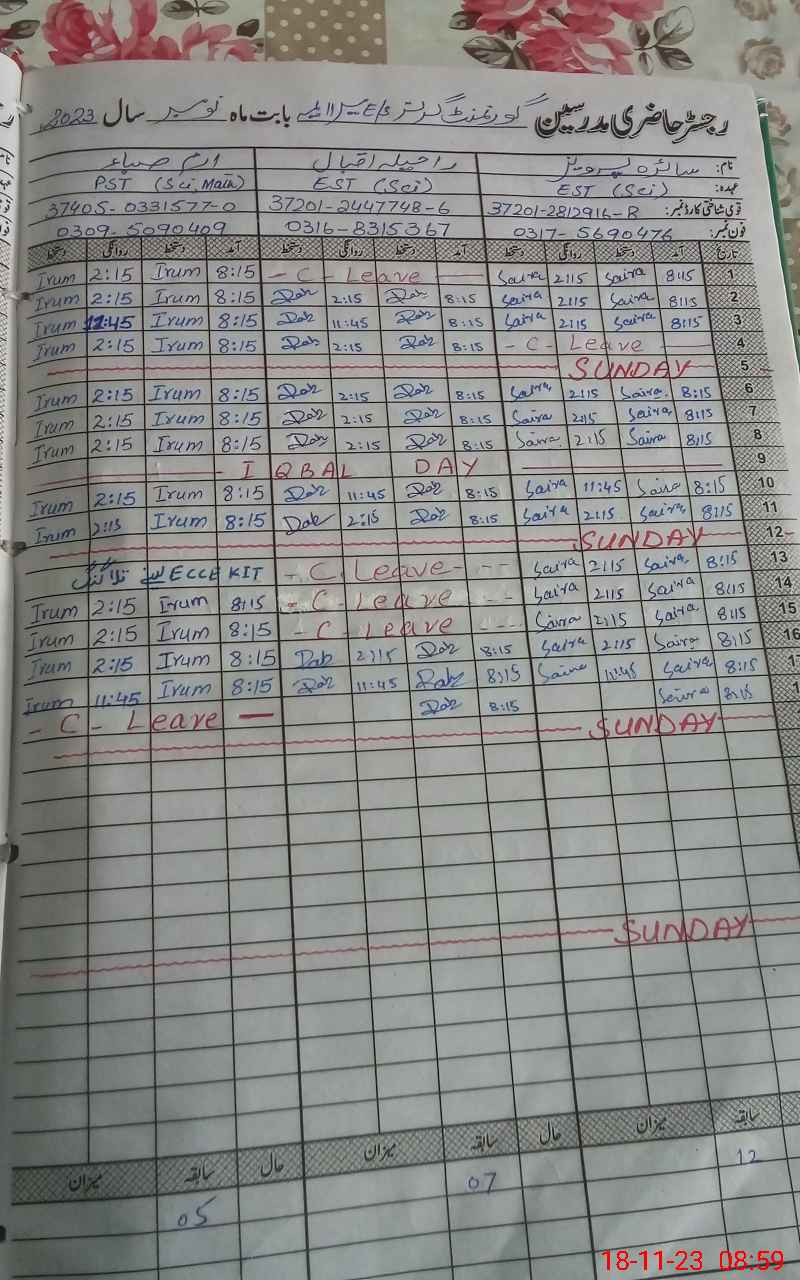 رجسٹر حاضری مدرسین گورنمنٹ گرلز E/S بابت ماہ نومبر سال 2023
نام: سائرہ پرویز راحیلہ اقبال ارم صباء
عہدہ: EST (Sci) EST (Sci) PST (Sci, Math)
قومی شناختی کارڈ نمبر: 37201-2812916-8 37201-2447748-6 37405-0331577-0
فون نمبر: 0317-5690476 0316-8315367 0309-5090409
تاریخ آمد دستخط روانگی دستخط آمد دستخط روانگی دستخط آمد دستخط روانگی دستخط
1 8:15 Saira 2:15 Saira - C - Leave - 8:15 Irum 2:15 Irum
2 8:15 Saira 2:15 Saira 8:15 2:15 8:15 Irum 2:15 Irum
3 8:15 Saira 2:15 Saira 8:15 11:45 8:15 Irum 11:45 Irum
4 - C - Leave - 8:15 2:15 8:15 Irum 2:15 Irum
5 SUNDAY
6 8:15 Saira 2:15 Saira 8:15 2:15 8:15 Irum 2:15 Irum
7 8:15 Saira 2:15 Saira 8:15 2:15 8:15 Irum 2:15 Irum
8 8:15 Saira 2:15 Saira 8:15 2:15 8:15 Irum 2:15 Irum
9 IQBAL DAY
10 8:15 Saira 11:45 Saira 8:15 11:45 8:15 Irum 2:15 Irum
11 8:15 Saira 2:15 Saira 8:15 2:15 8:15 Irum 2:15 Irum
12 SUNDAY
13 8:15 Saira 2:15 Saira - C. Leave - ECCE KIT
14 8:15 Saira 2:15 Saira - C - Leave - 8:15 Irum 2:15 Irum
15 8:15 Saira 2:15 Saira - C - Leave - 8:15 Irum 2:15 Irum
16 8:15 Saira 2:15 Saira 8:15 2:15 8:15 Irum 2:15 Irum
8:15 Saira 11:45 Saira 8:15 11:45 8:15 Irum 11:45 Irum
8:15 Saira 8:15 - C - Leave -
SUNDAY
SUNDAY
سابقہ میزان حال سابقہ میزان حال سابقہ میزان
12 07 05
18-11-23 08:59